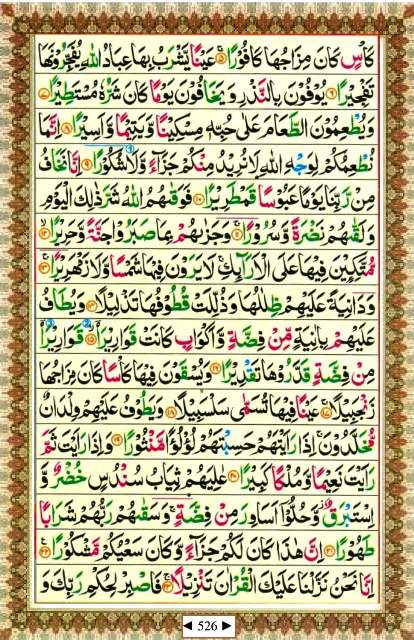 كَاْسٍ كَانَ مِزَاجُهَا كَافُوْرًا ۚ﴿۵﴾ عَيْنًا يَّشْرَبُ بِهَا عِبَادُ اللّٰهِ يُفَجِّرُوْنَهَا
تَفْجِيْرًا ﴿۶﴾ يُوْفُوْنَ بِالنَّذْرِ وَ يَخَافُوْنَ يَوْمًا كَانَ شَرُّهٗ مُسْتَطِيْرًا ﴿۷﴾
وَ يُطْعِمُوْنَ الطَّعَامَ عَلٰى حُبِّهٖ مِسْكِيْنًا وَّ يَتِيْمًا وَّ اَسِيْرًا ﴿۸﴾ اِنَّمَا
نُطْعِمُكُمْ لِوَجْهِ اللّٰهِ لَا نُرِيْدُ مِنْكُمْ جَزَآءً وَّ لَا شُكُوْرًا ﴿۹﴾ اِنَّا نَخَافُ
مِنْ رَّبِّنَا يَوْمًا عَبُوْسًا قَمْطَرِيْرًا ﴿۱۰﴾ فَوَقٰىهُمُ اللّٰهُ شَرَّ ذٰلِكَ الْيَوْمِ
وَ لَقّٰىهُمْ نَضْرَةً وَّ سُرُوْرًا ۚ﴿۱۱﴾ وَ جَزٰىهُمْ بِمَا صَبَرُوْا جَنَّةً وَّ حَرِيْرًا ۙ﴿۱۲﴾
مُّتَّكِـِٕيْنَ فِيْهَا عَلَى الْاَرَآىِٕكِ ۚ لَا يَرَوْنَ فِيْهَا شَمْسًا وَّ لَا زَمْهَرِيْرًا ۚ﴿۱۳﴾
وَ دَانِيَةً عَلَيْهِمْ ظِلٰلُهَا وَ ذُلِّلَتْ قُطُوْفُهَا تَذْلِيْلًا ﴿۱۴﴾ وَ يُطَافُ
عَلَيْهِمْ بِاٰنِيَةٍ مِّنْ فِضَّةٍ وَّ اَكْوَابٍ كَانَتْ قَوَارِيْرَا۠ ۙ﴿۱۵﴾ قَوَارِيْرَا۠
مِنْ فِضَّةٍ قَدَّرُوْهَا تَقْدِيْرًا ﴿۱۶﴾ وَ يُسْقَوْنَ فِيْهَا كَاْسًا كَانَ مِزَاجُهَا
زَنْجَبِيْلًا ۚ﴿۱۷﴾ عَيْنًا فِيْهَا تُسَمّٰى سَلْسَبِيْلًا ﴿۱۸﴾ وَ يَطُوْفُ عَلَيْهِمْ وِلْدَانٌ
مُّخَلَّدُوْنَ ۚ اِذَا رَاَيْتَهُمْ حَسِبْتَهُمْ لُؤْلُؤًا مَّنْثُوْرًا ﴿۱۹﴾ وَ اِذَا رَاَيْتَ ثَمَّ
رَاَيْتَ نَعِيْمًا وَّ مُلْكًا كَبِيْرًا ﴿۲۰﴾ عٰلِيَهُمْ ثِيَابُ سُنْدُسٍ خُضْرٌ وَّ
اِسْتَبْرَقٌ ؗ وَّ حُلُّوْۤا اَسَاوِرَ مِنْ فِضَّةٍ ۚ وَ سَقٰىهُمْ رَبُّهُمْ شَرَابًا
طَهُوْرًا ﴿۲۱﴾ اِنَّ هٰذَا كَانَ لَكُمْ جَزَآءً وَّ كَانَ سَعْيُكُمْ مَّشْكُوْرًا ﴿۲۲﴾
اِنَّا نَحْنُ نَزَّلْنَا عَلَيْكَ الْقُرْاٰنَ تَنْزِيْلًا ۚ﴿۲۳﴾ فَاصْبِرْ لِحُكْمِ رَبِّكَ وَ
◄ 526 ►